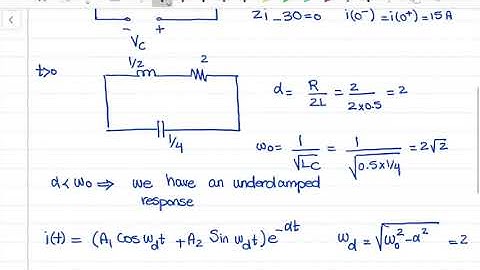 2i - 30 = 0 i(0⁻) = i(0⁺) = 15 A
- +
Vc
t>0
1/2 2
1/4
α = R/2L = 2/(2×0.5) = 2
ω₀ = 1/√LC = 1/√(0.5×1/4) = 2√2
α < ω₀ ⇒ we have an underdamped
response
i(t) = (A₁ cos ωd t + A₂ Sin ωd t) e^-αt ωd = √(ω₀² - α²) = 2